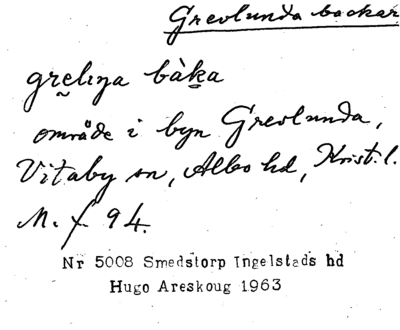 Grevlunda backar
grelıŋa bàka
område i byn Grevlunda,
Vitaby sn, Albo hd, Krist. l.
M. f. 94.
Nr 5008 Smedstorp Ingelstads hd
Hugo Areskoug 1963